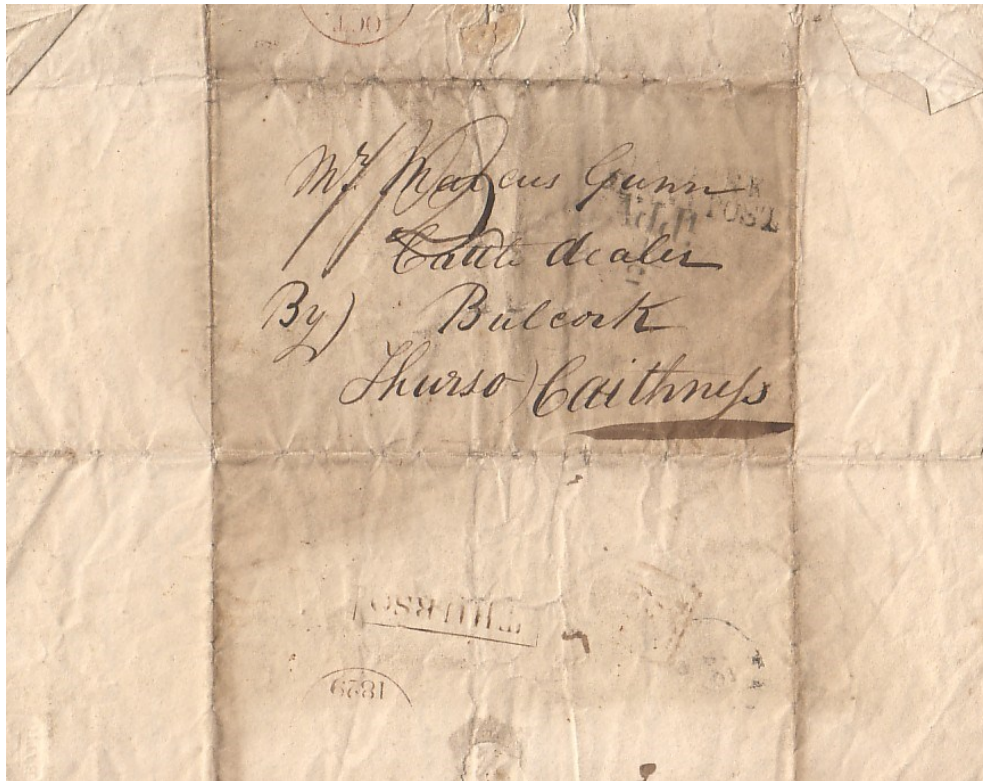 OCT
Mr. Marcus Gunn
Cattle dealer
By) Bulcork
Thurso) Caithness
POST
THURSO
1829